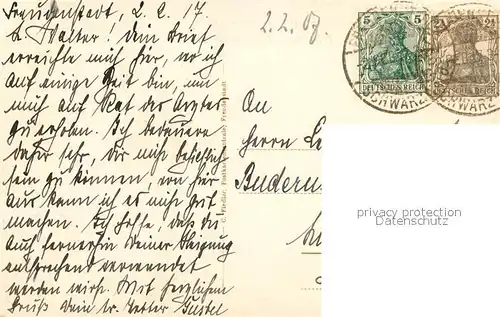 Freudenstadt, 2. 2. 17.
L. Walter! Dein Brief
erreichte mich hier, wo ich
auf einige Zeit bin, um
mich auf Rat des Arztes
zu erholen. Ich bedauere
daher sehr, dir nicht behilflich
sein zu können, von hier
aus kann ich es nicht gut
machen. Ich hoffe, daß du
auch fernerhin deiner Neigung
entsprechend verwendet
werden wirst. Mit herzlichem
Gruß Dein tr. Vetter Gustel
2. 2.
5 5
DEUTSCHES REICH
SCHWARZ
2½
DEUTSCHES REICH
SCHWARZ
An
Herrn
Buderu
privacy protection
Datenschutz